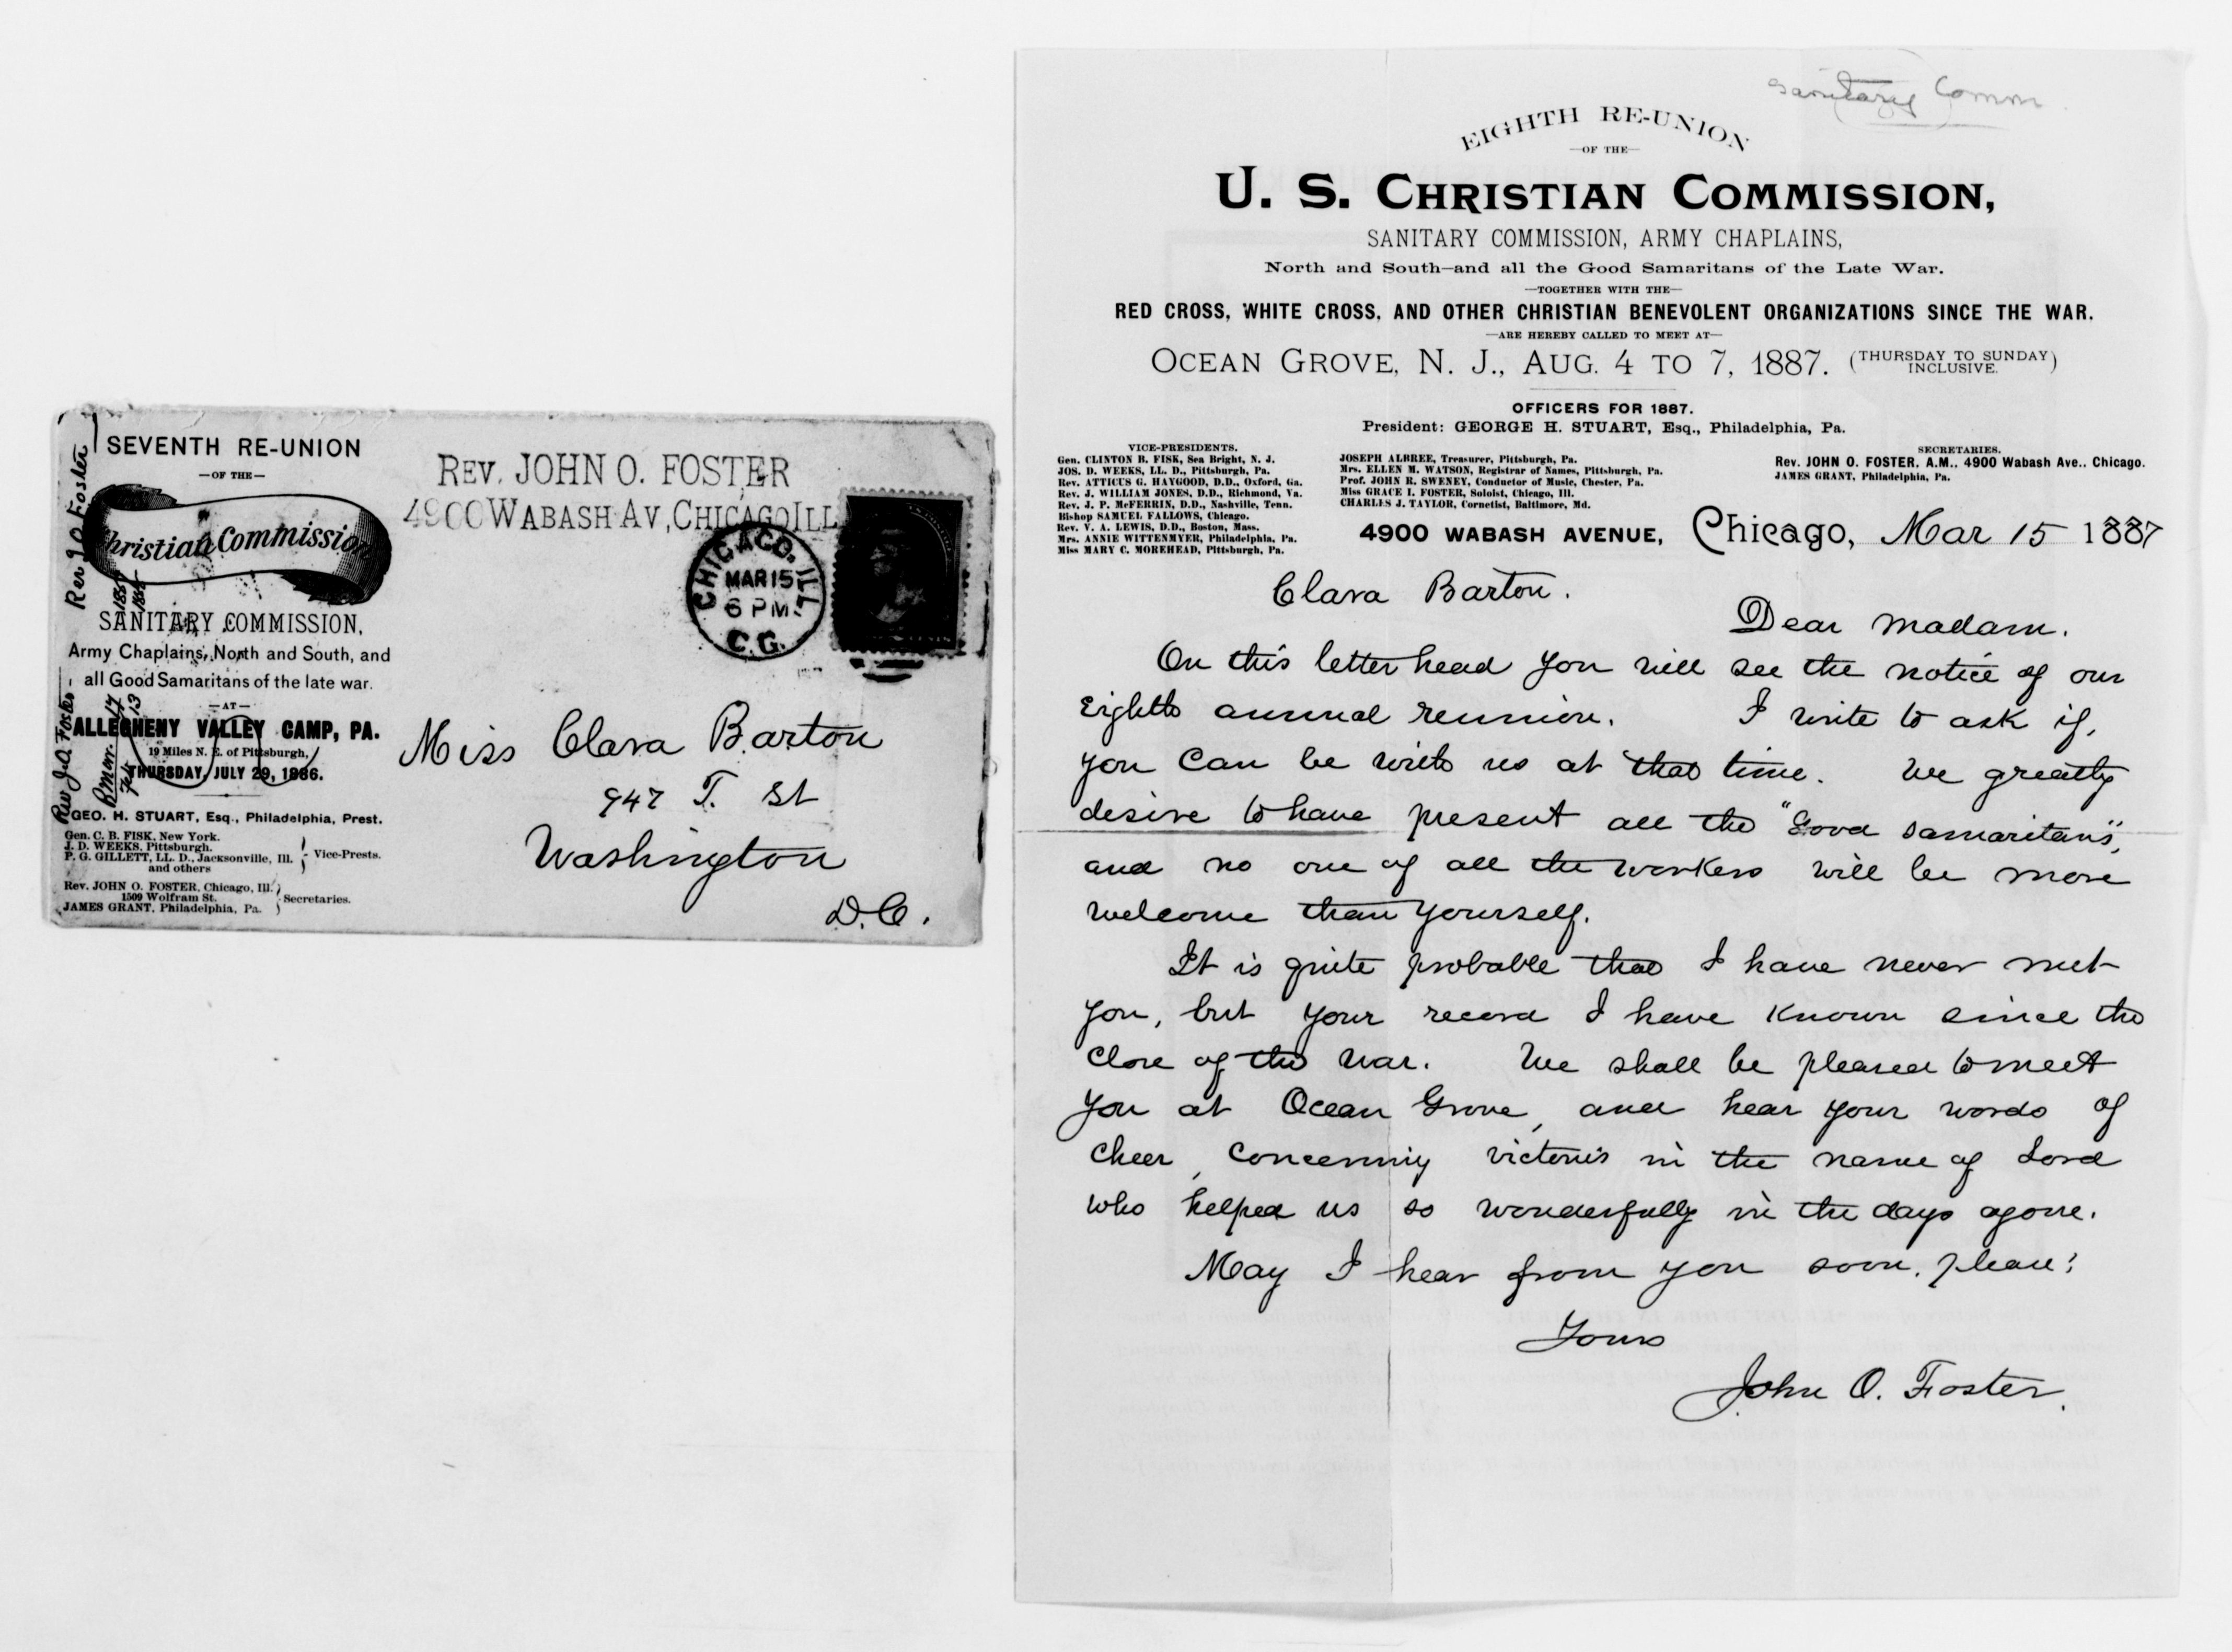 Rev J O Foster
SEVENTH RE-UNION
—OF THE—
Christian Commission
SANITARY COMMISSION,
Army Chaplains, North and South, and
all Good Samaritans of the late war.
—AT—
ALLEGHENY VALLEY CAMP, PA.
19 Miles N. E. of Pittsburgh,
THURSDAY, JULY 29, 1886.
GEO. H. STUART, Esq., Philadelphia, Prest.
Gen. C. B. FISK, New York.
J. D. WEEKS, Pittsburgh.
P. G. GILLETT, LL. D., Jacksonville, Ill.
and others
Vice-Prests.
Rev. JOHN O. FOSTER, Chicago, Ill.
1509 Wolfram St.
JAMES GRANT, Philadelphia, Pa.
Secretaries.
Rev J. O. Foster
REV. JOHN O. FOSTER
4900 WABASH AV, CHICAGO ILL
CHICAGO, ILL.
MAR 15
6 PM
C.G.
Miss Clara Barton
947 T. St
Washington
D.C.
Sanitary Comm
EIGHTH RE-UNION
—OF THE—
U. S. CHRISTIAN COMMISSION,
SANITARY COMMISSION, ARMY CHAPLAINS,
North and South—and all the Good Samaritans of the Late War.
—TOGETHER WITH THE—
RED CROSS, WHITE CROSS, AND OTHER CHRISTIAN BENEVOLENT ORGANIZATIONS SINCE THE WAR.
—ARE HEREBY CALLED TO MEET AT—
OCEAN GROVE, N. J., AUG. 4 TO 7, 1887. (THURSDAY TO SUNDAY INCLUSIVE.)
OFFICERS FOR 1887.
President: GEORGE H. STUART, Esq., Philadelphia, Pa.
VICE-PRESIDENTS.
Gen. CLINTON B. FISK, Sea Bright, N. J.
JOS. D. WEEKS, LL. D., Pittsburgh, Pa.
Rev. ATTICUS G. HAYGOOD, D.D., Oxford, Ga.
Rev. J. WILLIAM JONES, D.D., Richmond, Va.
Rev. J. P. McFERRIN, D.D., Nashville, Tenn.
Bishop SAMUEL FALLOWS, Chicago.
Rev. V. A. LEWIS, D.D., Boston, Mass.
Mrs. ANNIE WITTENMYER, Philadelphia, Pa.
Miss MARY C. MOREHEAD, Pittsburgh, Pa.
JOSEPH ALBREE, Treasurer, Pittsburgh, Pa.
Mrs. ELLEN M. WATSON, Registrar of Names, Pittsburgh, Pa.
Prof. JOHN R. SWENEY, Conductor of Music, Chester, Pa.
Miss GRACE I. FOSTER, Soloist, Chicago, Ill.
CHARLES J. TAYLOR, Cornetist, Baltimore, Md.
SECRETARIES.
Rev. JOHN O. FOSTER, A.M., 4900 Wabash Ave., Chicago.
JAMES GRANT, Philadelphia, Pa.
4900 WABASH AVENUE, Chicago, Mar 15 1887
Clara Barton.
Dear Madam.
On this letter head you will see the notice of our
Eighth annual reunion. I write to ask if,
you can be with us at that time. We greatly
desire to have present all the "Good Samaritans",
and no one of all the workers will be more
welcome than yourself.
It is quite probable that I have never met
you, but your record I have known since the
close of the war. We shall be pleased to meet
you at Ocean Grove, and hear your words of
cheer, concerning victories in the name of Lord
who helped us so wonderfully in the days agone.
May I hear from you soon, please?
Yours
John O. Foster.